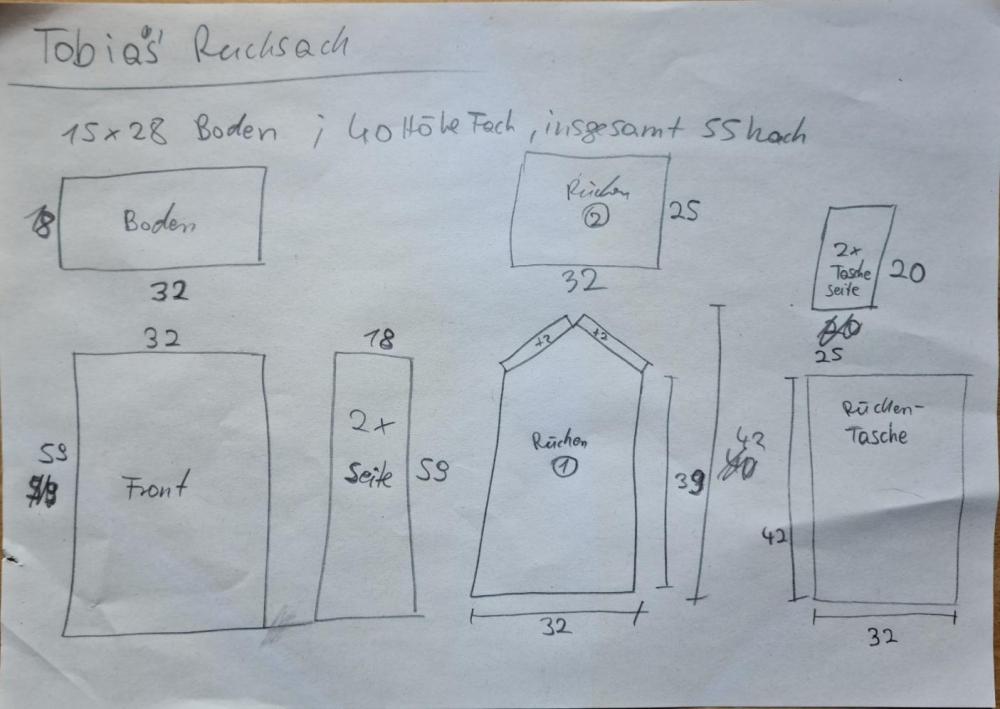 Tobias' Rucksack
15x28 Boden ; 40 Höhe Fach, insgesamt 55 hoch
18
Boden
32
Rücken
②
25
32
2x
Tasche
seite
20
25
32
59
Front
18
2x
Seite
59
+2
+2
Rücken
①
39
42
32
Rücken-
Tasche
42
32